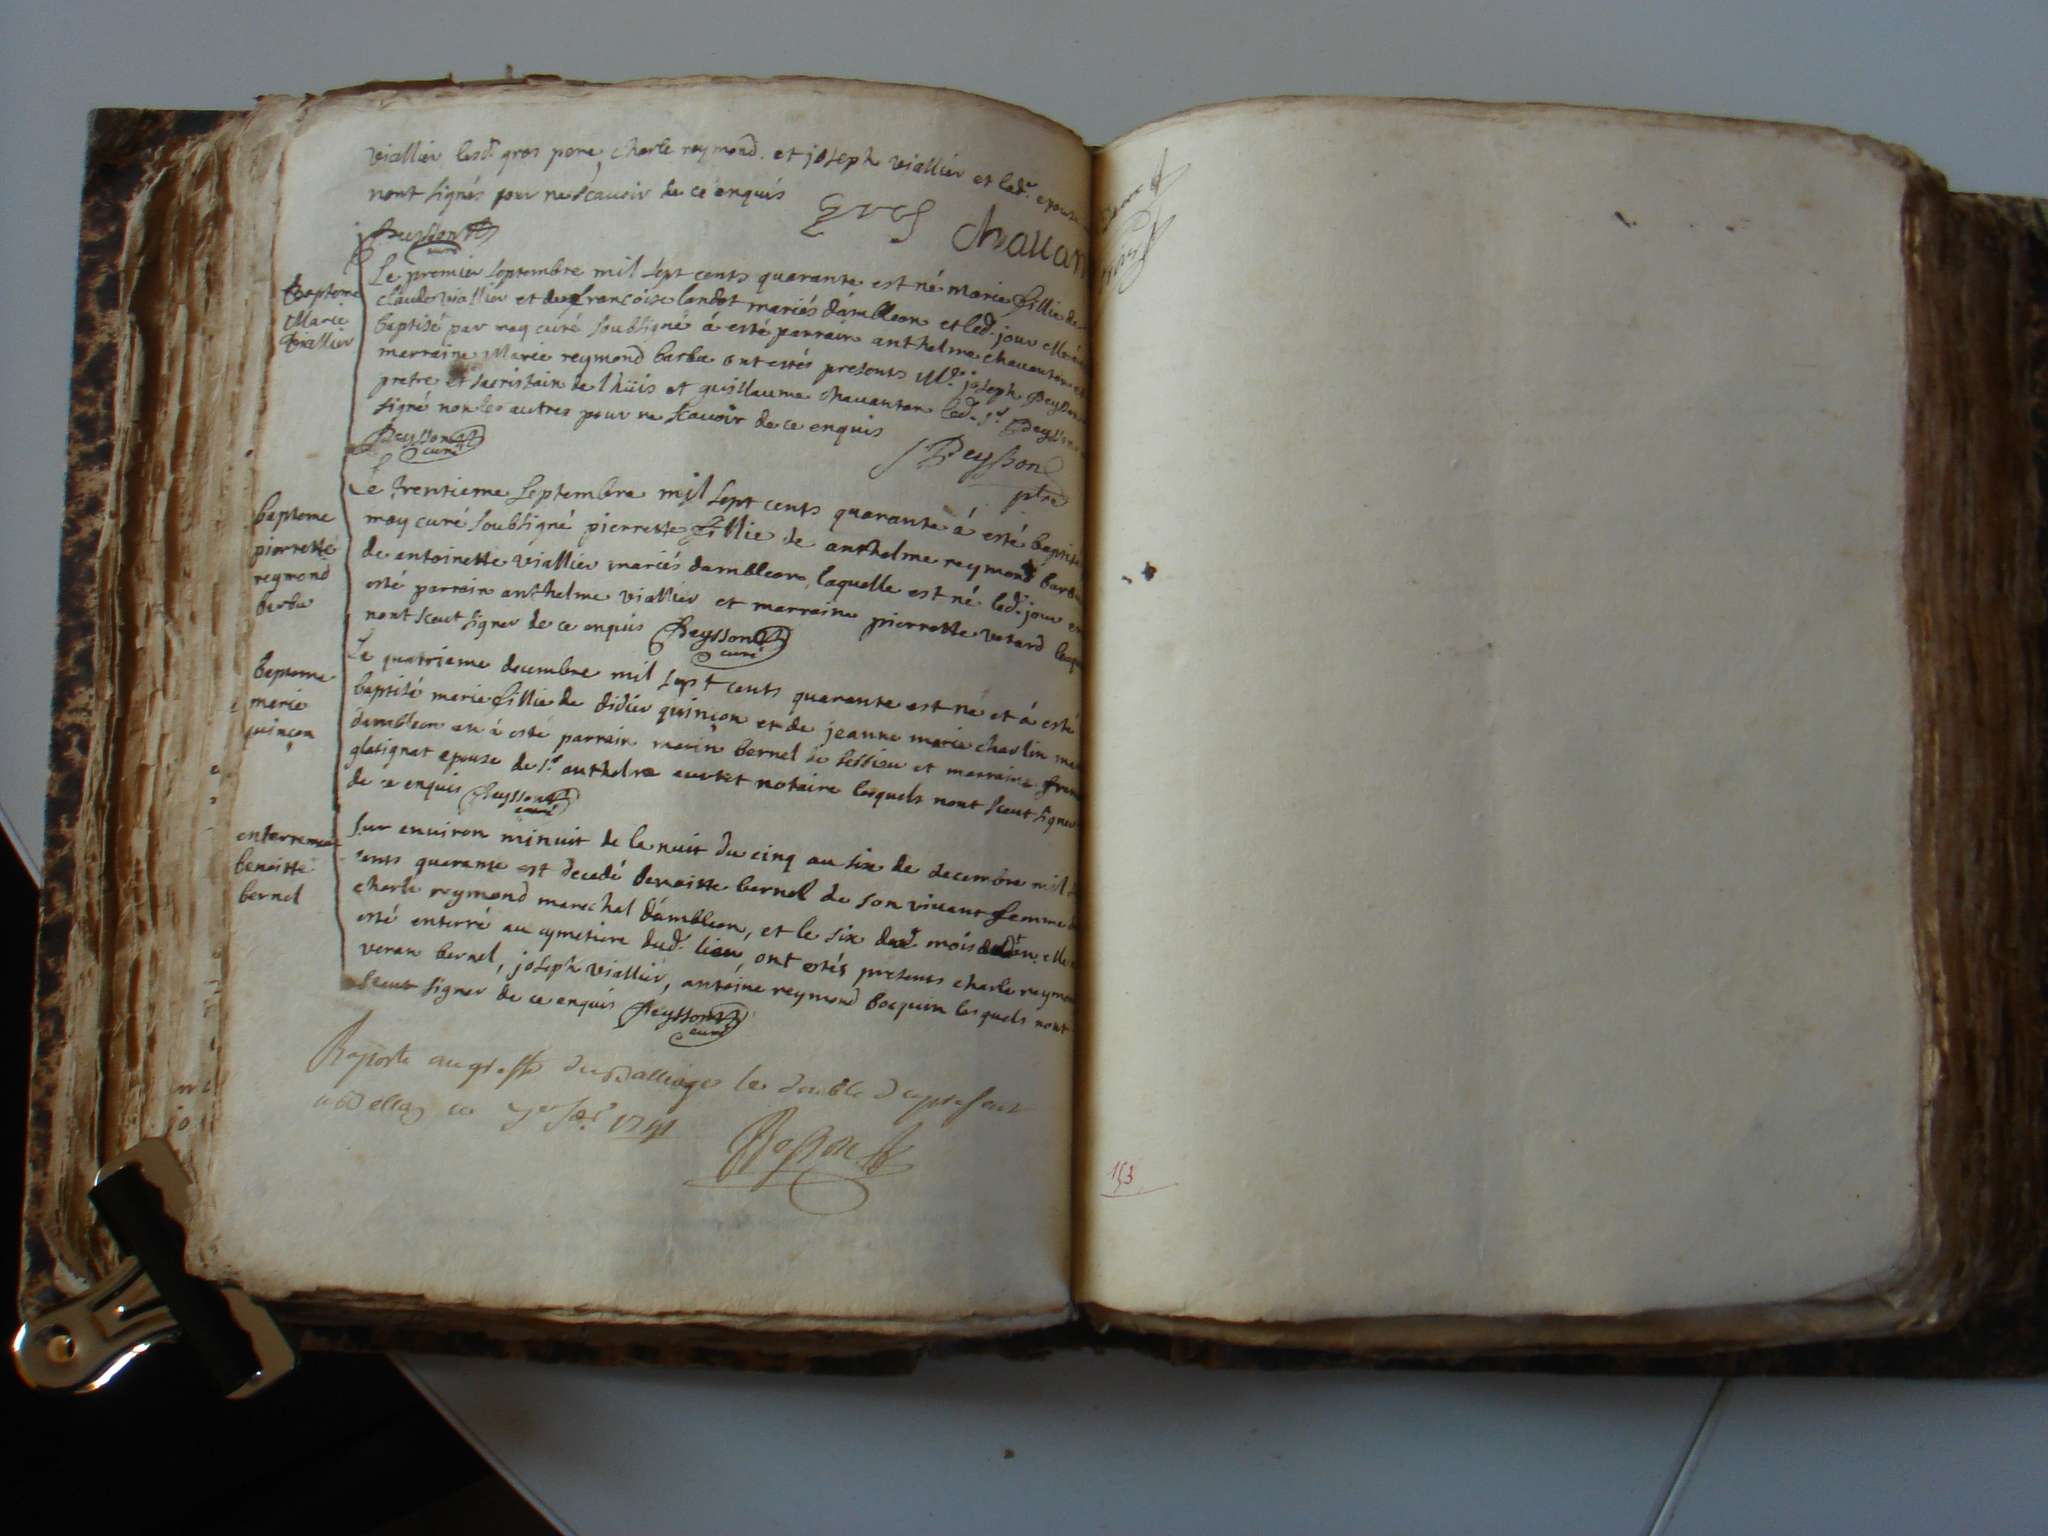 viallier lesd. gros pere, charle reymond. et joseph viallier et led. epouse
nont signés pour ne scavoir de ce enquis
gros chauan
Peysson
Baptome
Marie
viallier
Le premier septembre mil sept cents quarante est né marie fillie de
claude viallier et de francoise landot mariés d'ambleon et led. jour elle a
baptisé par moy curé soubsigné á esté parrain anthelme chauanton et
marraine Marie reymond barba ont estés presents Mr. joseph Peysson
pretre et sacristain de lhüis et guillaume chauanton led. sr. Peysson
signé non les autres pour ne scauoir de ce enquis
Peysson
curé
Peysson
ptre
baptome
pierrette
reymond
barba
Le trentieme septembre mil sept cents quarante á esté baptisé
moy curé soubsigné pierrette fillie de anthelme reymond barba
de antoinette viallier mariés dambleon, laquelle est né led. jour en
esté parrain anthelme viallier et marraine pierrette vetard lesq
nont sceut signer de ce enquis Peysson
curé
baptome
marie
quinçon
Le quatrieme decembre mil sept cents quarante est né et á esté
baptisé marie fillie de didier quinçon et de jeanne marie charlin ma
dambleon en á esté parrain marin bernel de sessieu et marraine fran
glatignat epouse de sr. anthelme auxtet notaire lesquels nont sceut signer
de ce enquis Peysson
curé
enterrement
benoitte
bernel
sur environ minuit de la nuit du cinq au six de decembre mil s
cents quarante est decedé benoitte bernel de son vivant femme de
charle reymond marechal d'ambleon, et le six dud. mois elle a
esté enterré au cymetiere dud. lieu, ont estés presents charle reymon
veran bernel, joseph viallier, antoine reymond bocquin lesquels nont
sceut signer de ce enquis Peysson
curé
Raporte au greffe du Balliage le double du present
a belley ce 1741
153